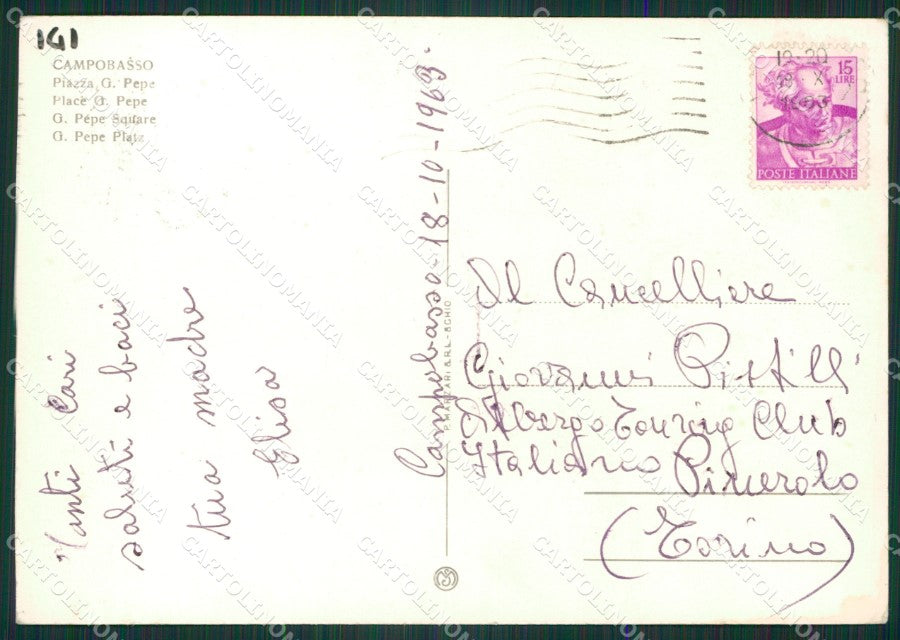 141
CAMPOBASSO
Piazza G. Pepe
Place G. Pepe
G. Pepe Square
G. Pepe Platz
15
LIRE
POSTE ITALIANE
Campobasso-18-10-1963.
Tanti Cari
saluti e baci
tua madre
Elisa
Al Cancelliere
Giovanni Pistilli
Albergo Touring Club
Italiano Pinerolo
(Torino)
CARTOLINOMANIA